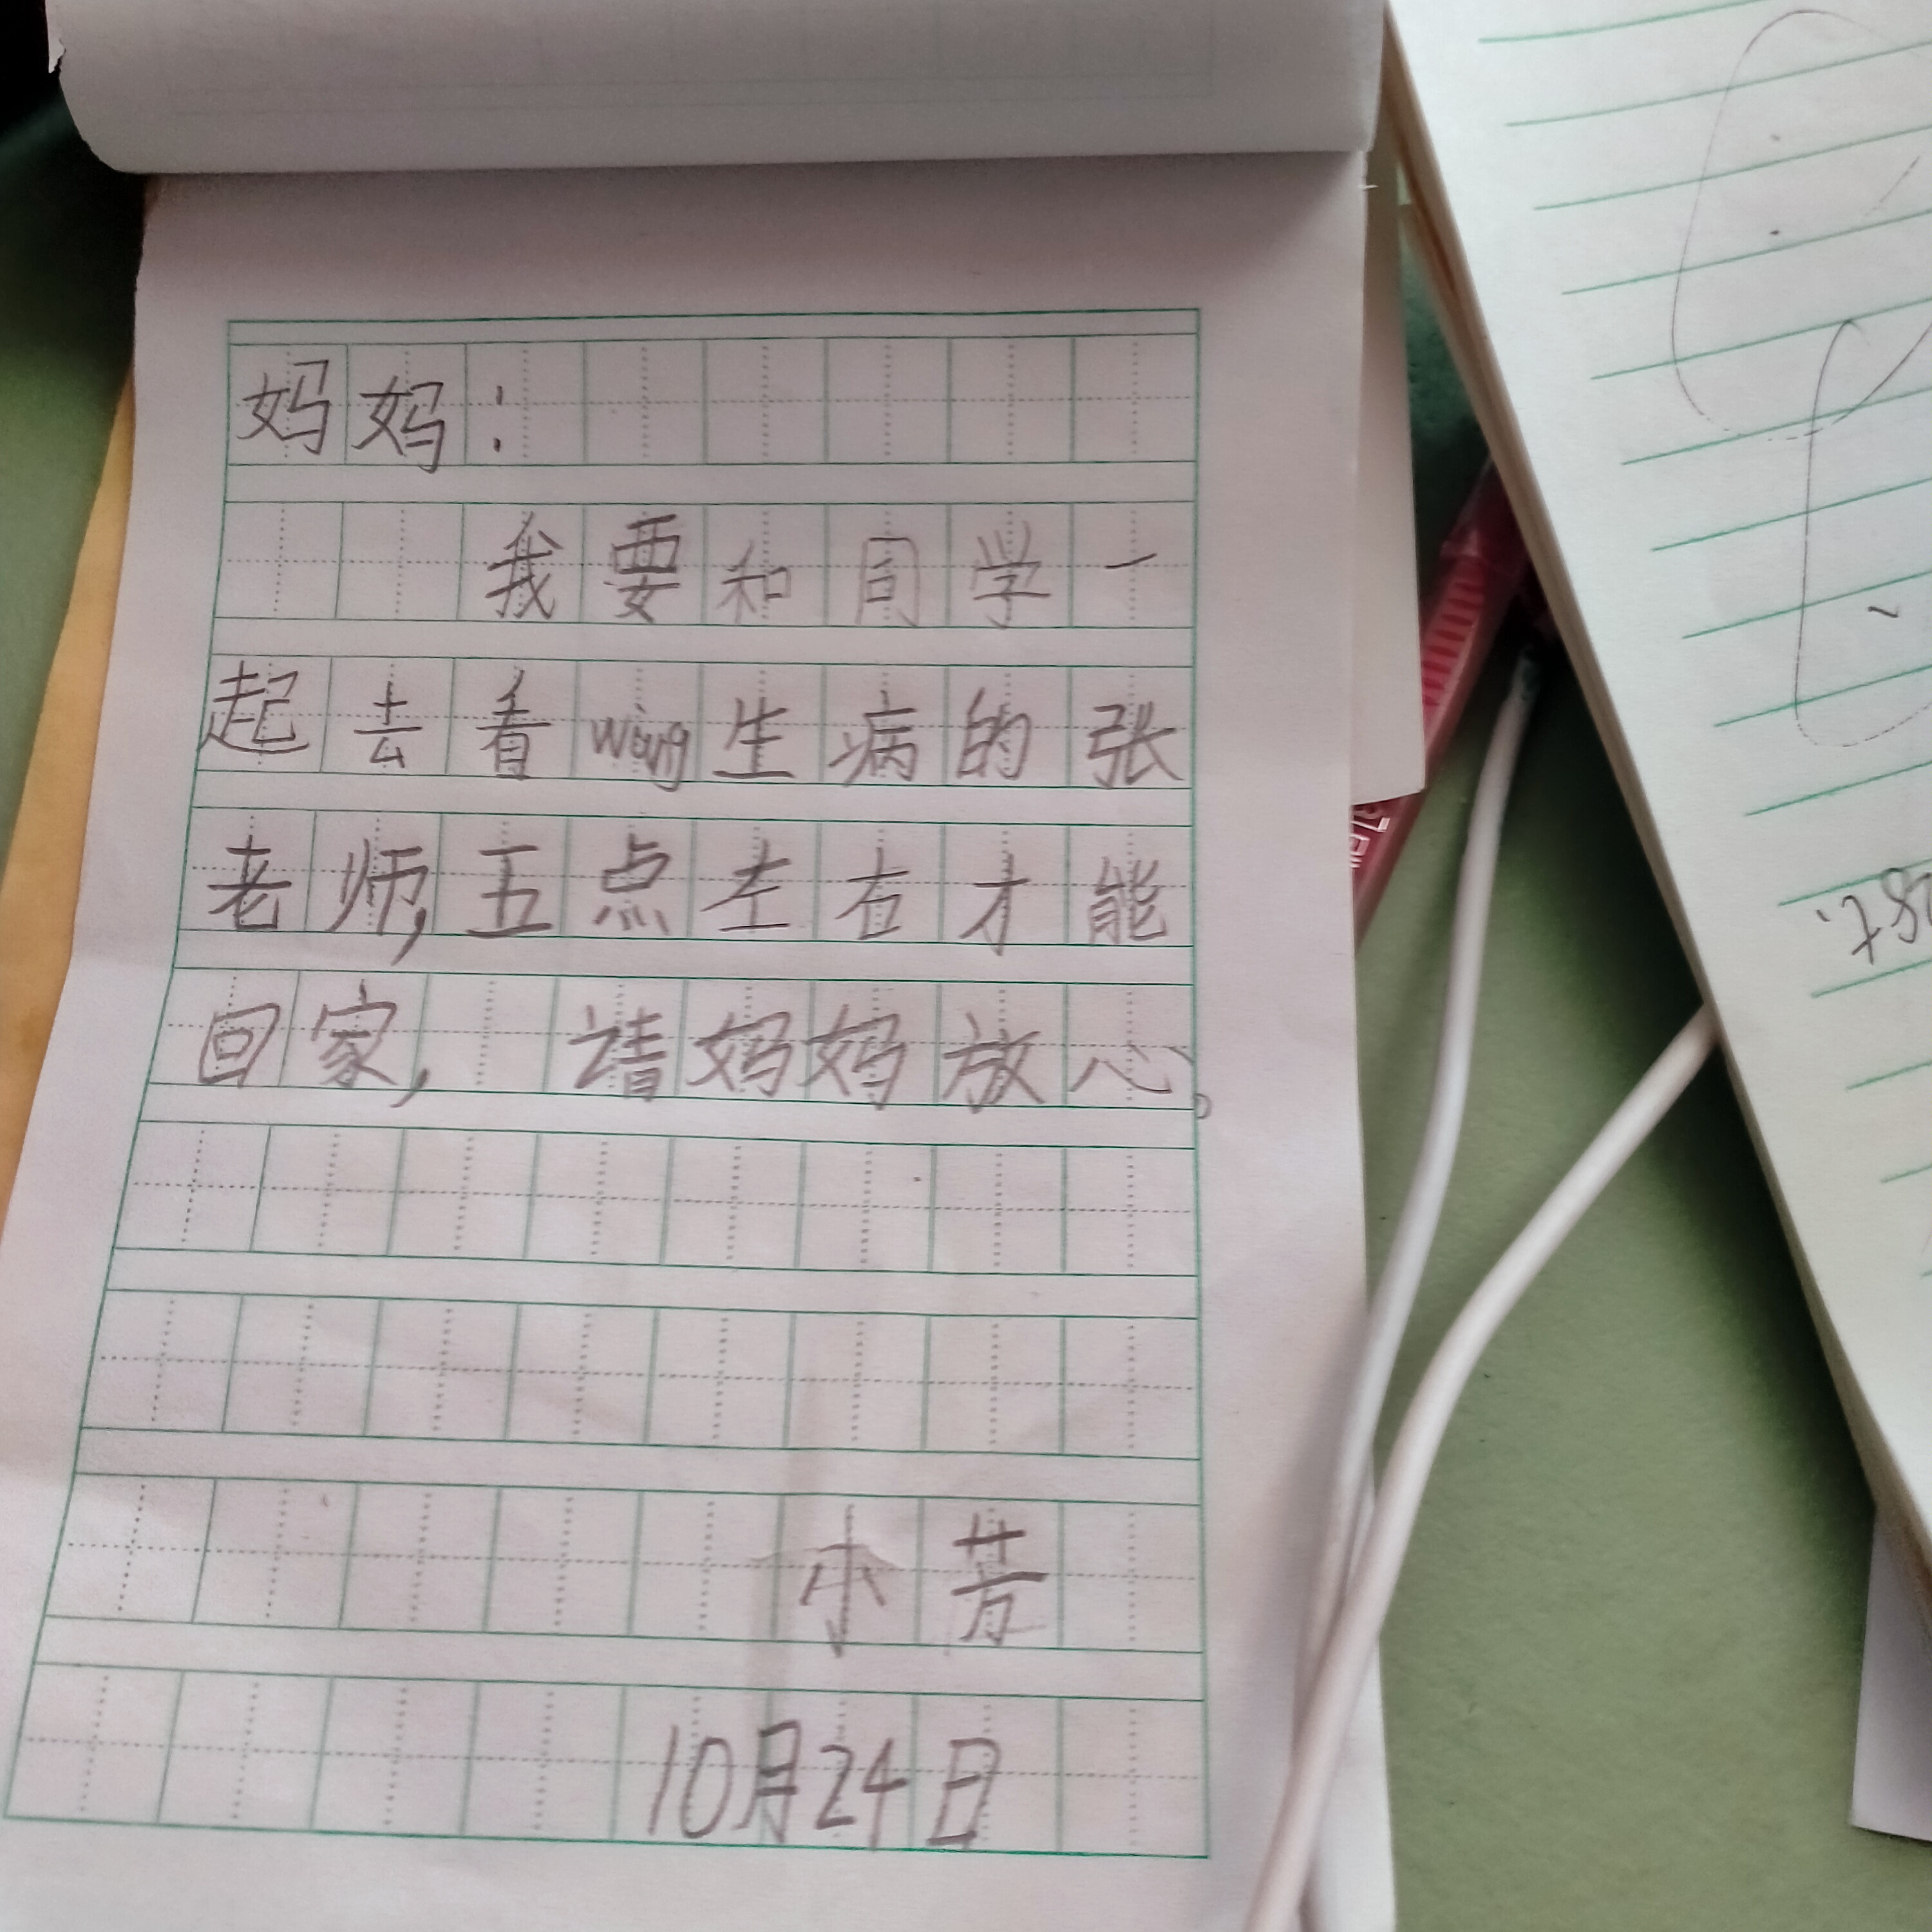 妈妈:
我要和同学一
起去看wàng生病的张
老师,五点左右才能
回家,请妈妈放心。
小芳
10月24日